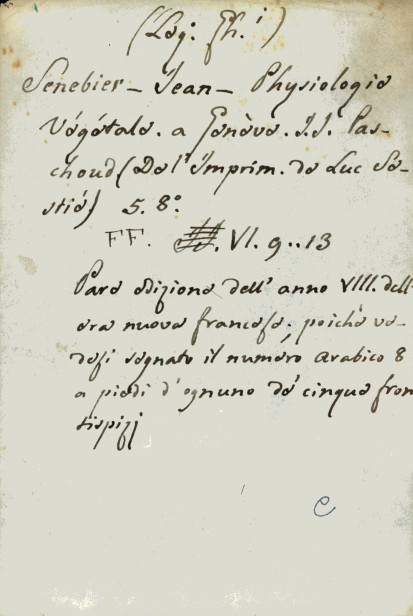 (Log: Fh.i)
Senebier - Jean - Physiologie
Végétale. a Genève. J. J. Pas-
choud (De l'Imprim. de Luc Se-
stié) 5. 8.o
FF. VI. 9..13
Pare edizione dell' anno VIII. dell'
era nuova francese; poichè ve-
desi segnato il numero arabico 8
a piedi d'ognuno de' cinque fron
tispizj
C